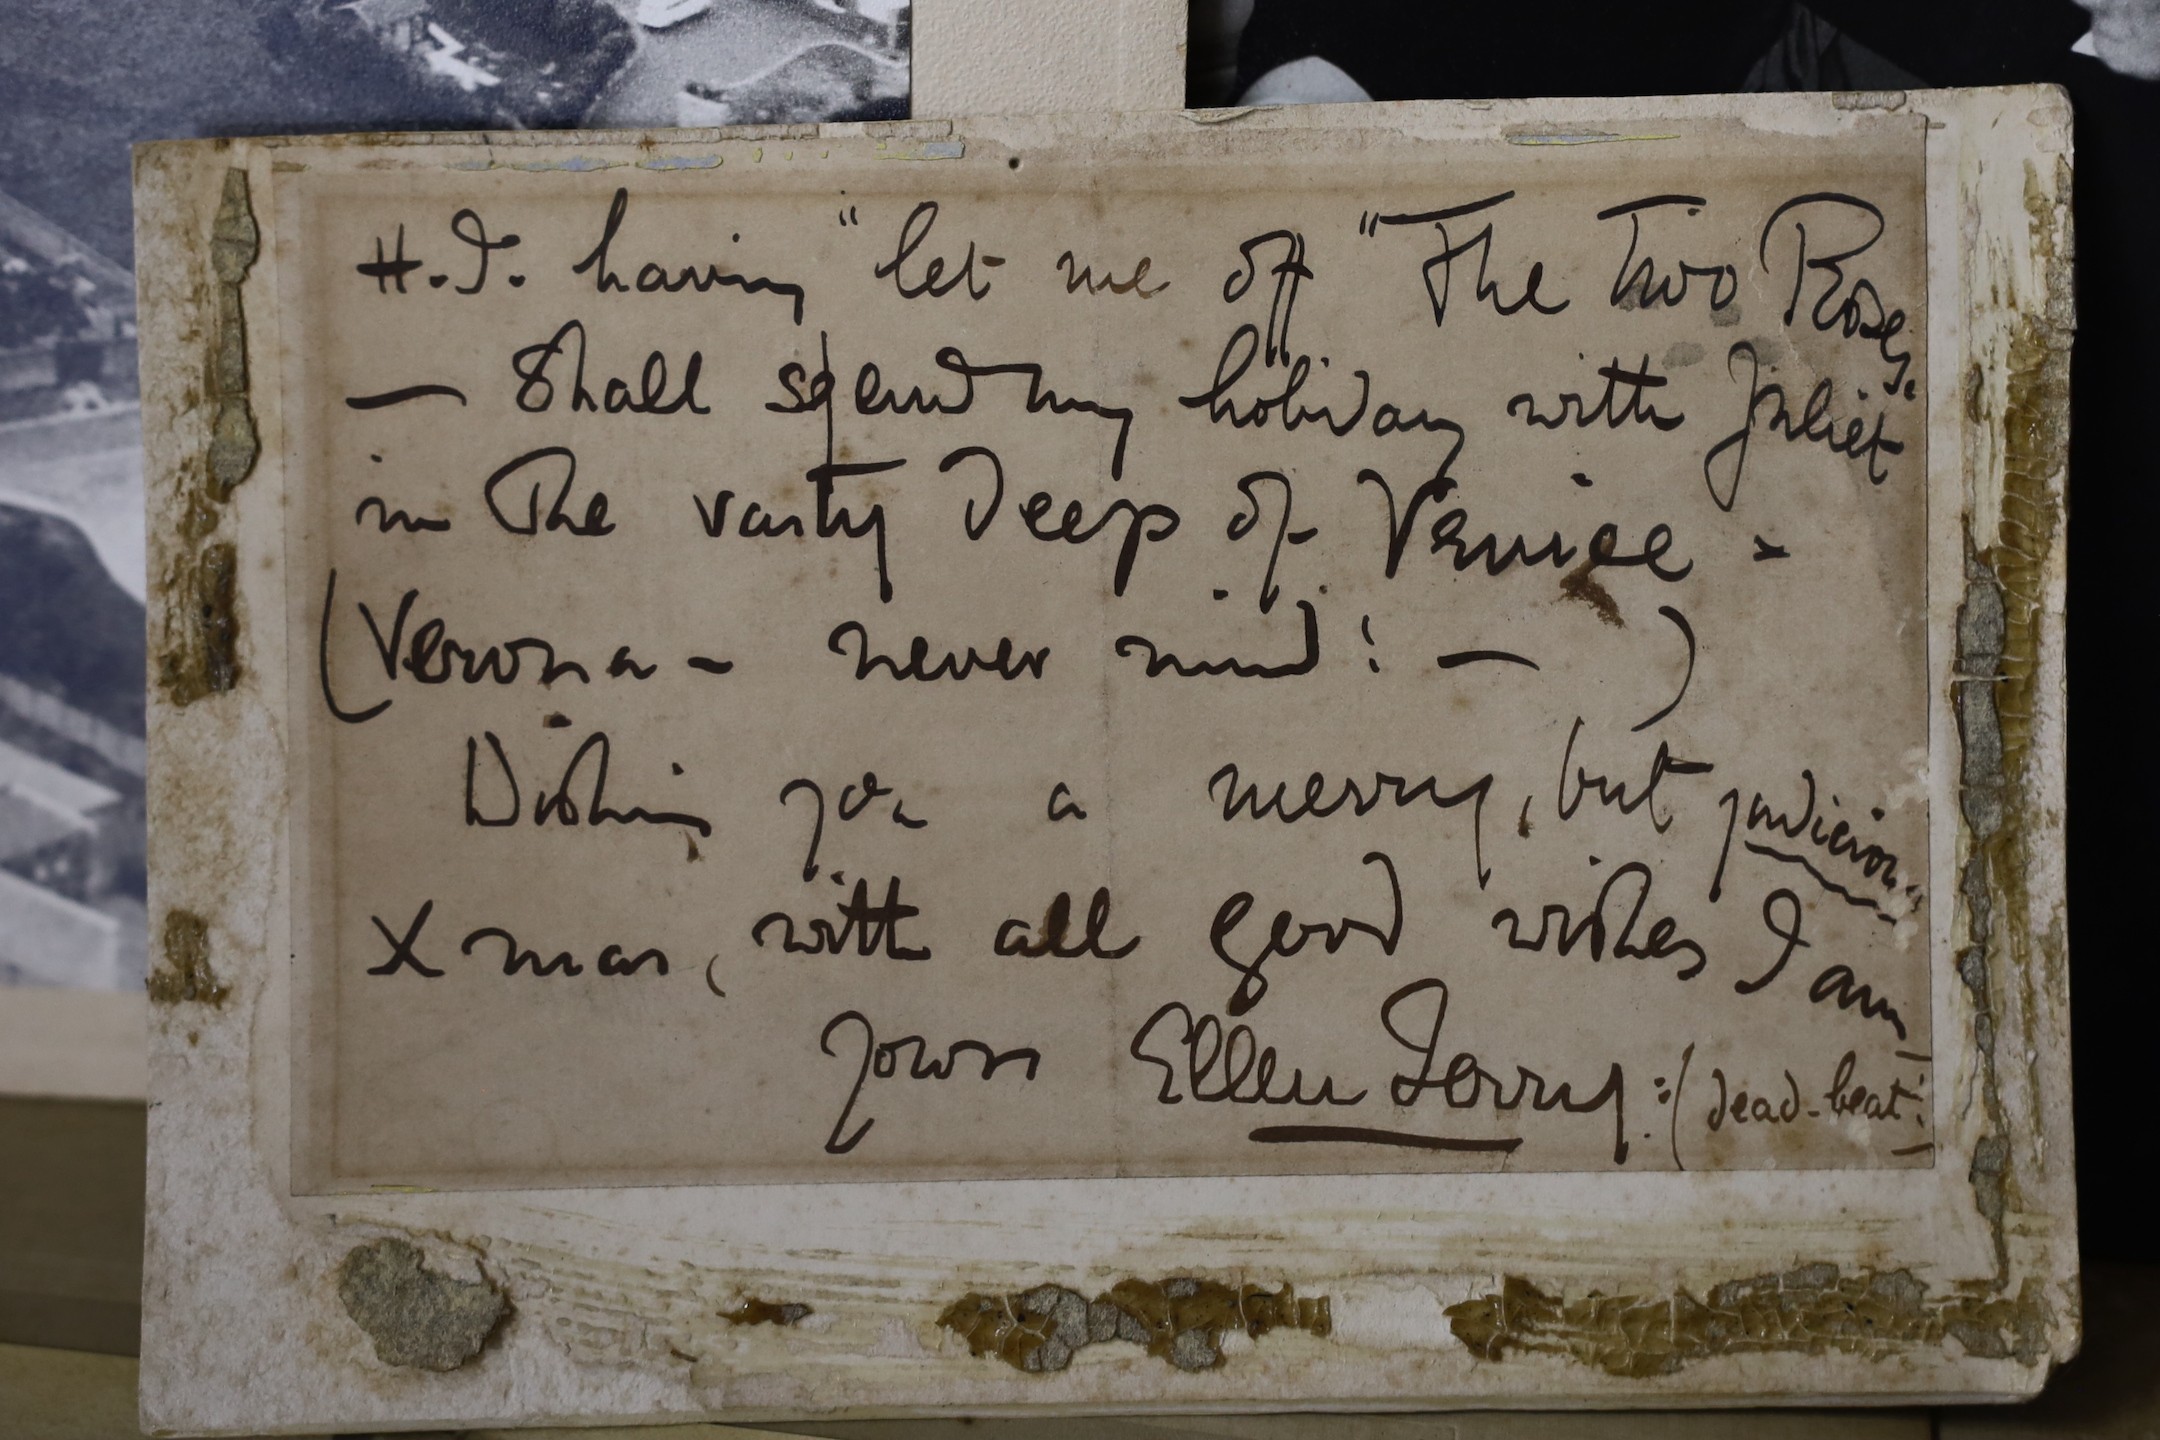 H.I. having "let me off "The Two Roses,"
— Shall spend my holiday with Juliet
in The vasty Deep of Venice -
(Verona - never mind! — )
Wishing you a merry, but judicious
Xmas, with all good wishes I am
Yours Ellen Terry: (dead-beat!